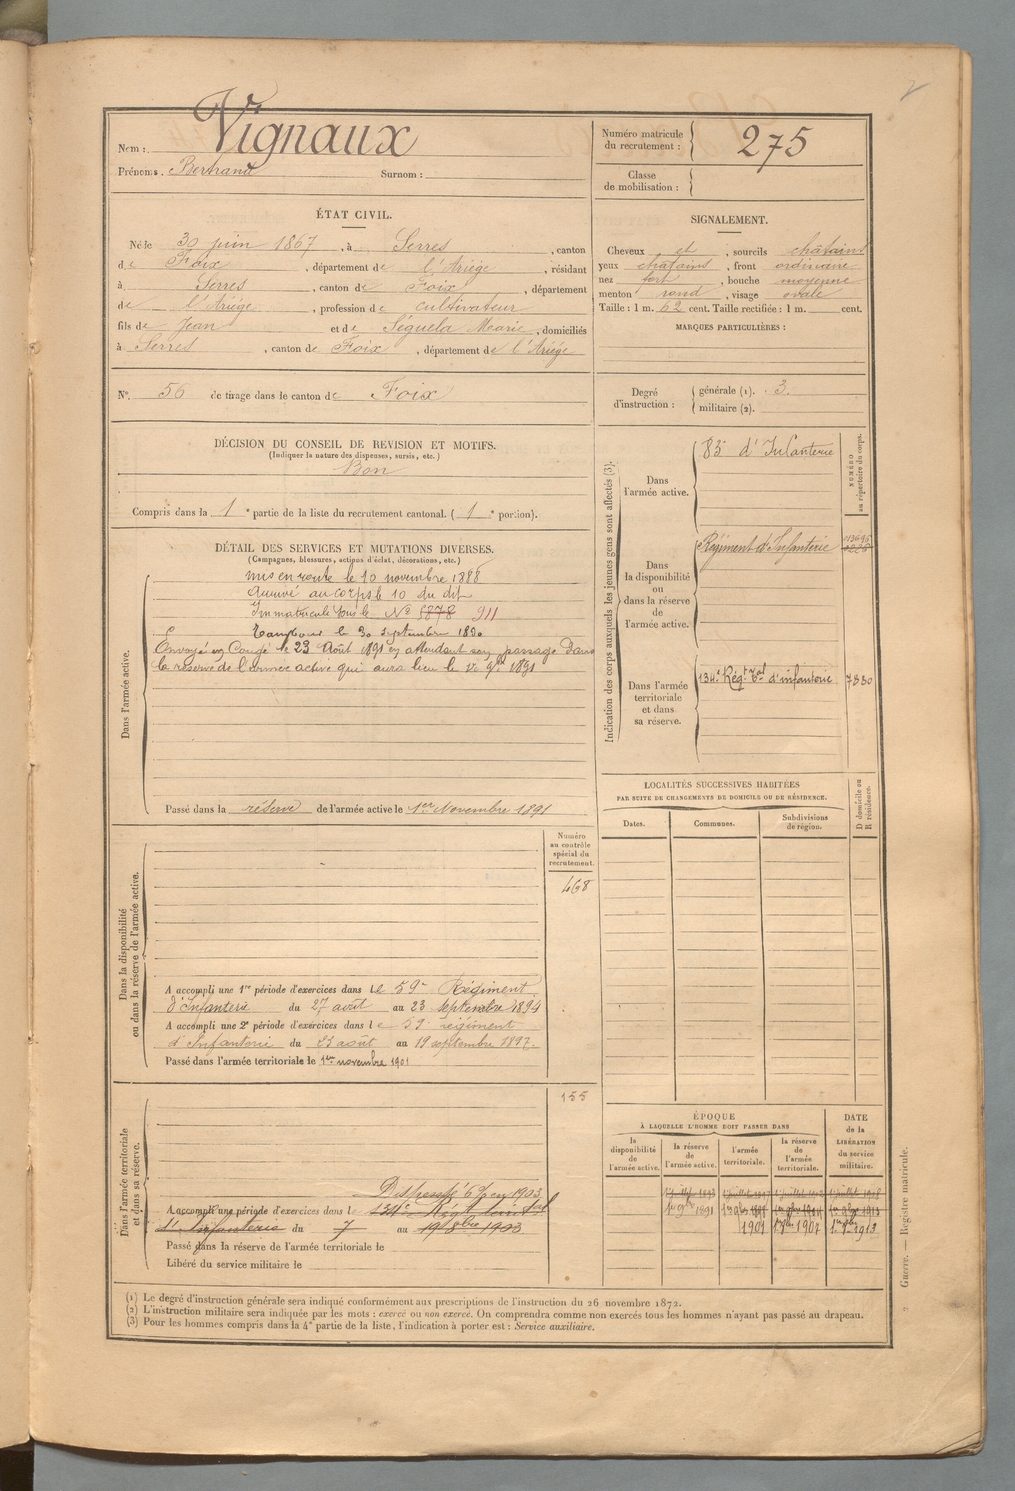 2
Nom : Vignaux
Prénoms : Bertrand Surnom :
Numéro matricule du recrutement : 275
Classe de mobilisation :
ÉTAT CIVIL.
Né le 30 juin 1867, à Serres, canton
de Foix, département de l'Ariège, résidant
à Serres, canton de Foix, département
de l'Ariége, profession de cultivateur
fils de Jean et de Séguéla Marie, domiciliés
à Serres, canton de Foix, département de l'Ariége
SIGNALEMENT.
Cheveux et, sourcils châtains
yeux châtains, front ordinaire
nez fort, bouche moyenne
menton rond, visage ovale
Taille : 1 m. 62 cent. Taille rectifiée : 1 m. cent.
MARQUES PARTICULIÈRES :
N°. 56 de tirage dans le canton de Foix
Degré d'instruction : générale (1). 3.
militaire (2).
DÉCISION DU CONSEIL DE REVISION ET MOTIFS.
(Indiquer la nature des dispenses, sursis, etc.)
Bon
Compris dans la 1e partie de la liste du recrutement cantonal. (1e portion).
DÉTAIL DES SERVICES ET MUTATIONS DIVERSES.
(Campagnes, blessures, actions d'éclat, décorations, etc.)
Dans l'armée active.
mis en route le 10 novembre 1888
Arrivé au corps le 10 du dit
Immatriculé sous le N° 6878 911
Tambour le 30 septembre 1890
Envoyé en Congé le 23 Août 1891 en attendant son passage dans
la réserve de l'armée active qui aura lieu le 1891
Passé dans la réserve de l'armée active le 1er Novembre 1891
Indication des corps auxquels les jeunes gens sont affectés (3).
NUMÉRO au répertoire du corps.
Dans l'armée active. 83e d'Infanterie
Dans la disponibilité ou dans la réserve de l'armée active. Régiment d'Infanterie
Dans l'armée territoriale et dans sa réserve. 134e Régt tal d'infanterie 7330
LOCALITÉS SUCCESSIVES HABITÉES
PAR SUITE DE CHANGEMENTS DE DOMICILE OU DE RÉSIDENCE.
Dates. Communes. Subdivisions de région. D domicile ou R résidence.
Dans la disponibilité ou dans la réserve de l'armée active.
Numéro au contrôle spécial du recrutement.
468
A accompli une 1re période d'exercices dans le 59e Régiment
d'Infanterie du 27 août au 23 septembre 1894
A accompli une 2e période d'exercices dans le 59 régiment
d'Infanterie du 23 août au 19 septembre 1897.
Passé dans l'armée territoriale le 1er novembre 1901
Dans l'armée territoriale et dans sa réserve.
155
Dispensé en 1903
A accompli une période d'exercices dans le 134e Régt territal
d'Infanterie du 7 au 19 8bre 1903
Passé dans la réserve de l'armée territoriale le
Libéré du service militaire le
ÉPOQUE
À LAQUELLE L'HOMME DOIT PASSER DANS
la disponibilité de l'armée active. la réserve de l'armée active. l'armée territoriale. la réserve de l'armée territoriale.
DATE de la LIBÉRATION du service militaire.
(1) Le degré d'instruction générale sera indiqué conformément aux prescriptions de l'instruction du 26 novembre 1872.
(2) L'instruction militaire sera indiquée par les mots : exercé ou non exercé. On comprendra comme non exercés tous les hommes n'ayant pas passé au drapeau.
(3) Pour les hommes compris dans la 4e partie de la liste, l'indication à porter est : Service auxiliaire.
Guerre. — Registre matricule.